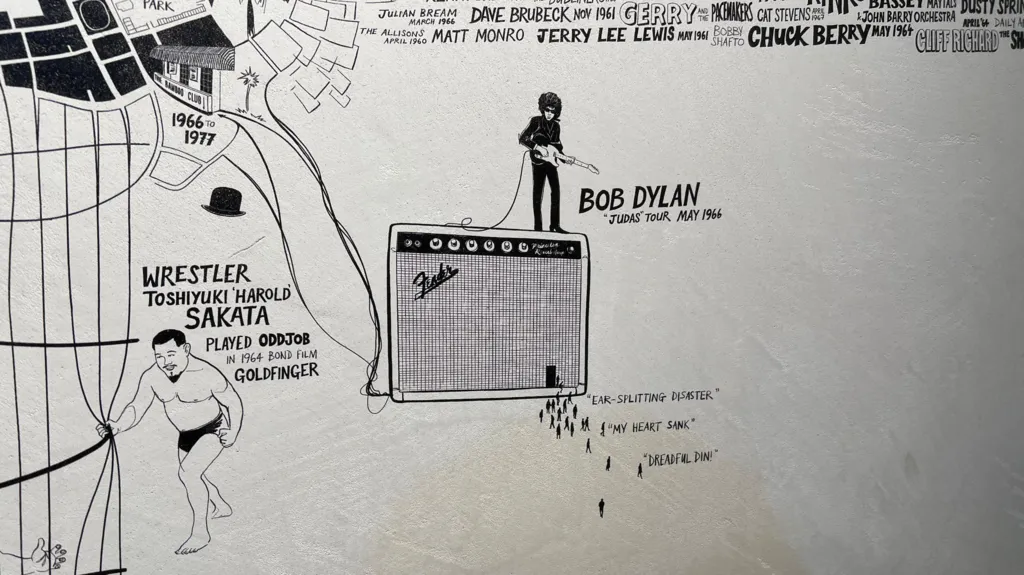 PARK
JULIAN BREAM
MARCH 1966
DAVE BRUBECK NOV 1961
GERRY AND THE PACEMAKERS
CAT STEVENS APRIL
BASSEY
MAYTALS
DUSTY
THE ALLISONS
APRIL 1960
MATT MONRO
JERRY LEE LEWIS MAY 1961
BOBBY
SHAFTO
CHUCK BERRY MAY 1964
& JOHN BARRY ORCHESTRA
APRIL '64
CLIFF RICHARD THE
BAMBOO CLUB
1966 TO
1977
BOB DYLAN
"JUDAS" TOUR MAY 1966
Fender
WRESTLER
TOSHIYUKI 'HAROLD'
SAKATA
PLAYED ODDJOB
IN 1964 BOND FILM
GOLDFINGER
"EAR-SPLITTING DISASTER"
"MY HEART SANK"
"DREADFUL DIN!"